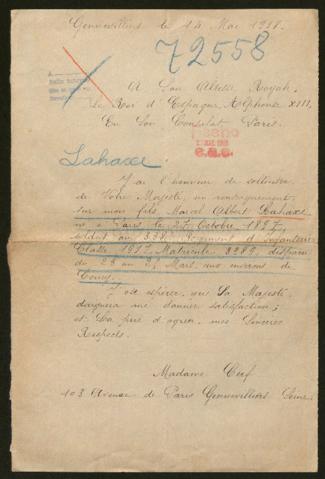 Gennevilliers le 14 Mai 1918.
72558
A Son Altesse Royale
Le Roi d'Espagne, Alphonse XIII,
En Son Consulat Paris.
Lahaxe
J'ai l'honneur de solliciter
de Votre Majesté, un renseignement
sur mon fils, Marcel Albert Lahaxe
né à Paris le 27 Octobre 1897,
soldat au 338e Régiment d'infanterie
Classe 1917, Matricule 8282, disparu
du 23 au 27 Mars, aux environs de
J'ose espérer, que Sa Majesté
daignera me donner satisfaction;
et La prie d'agréer, mes Sincères
Respects.
Madame
103 Avenue de Paris Gennevilliers Seine